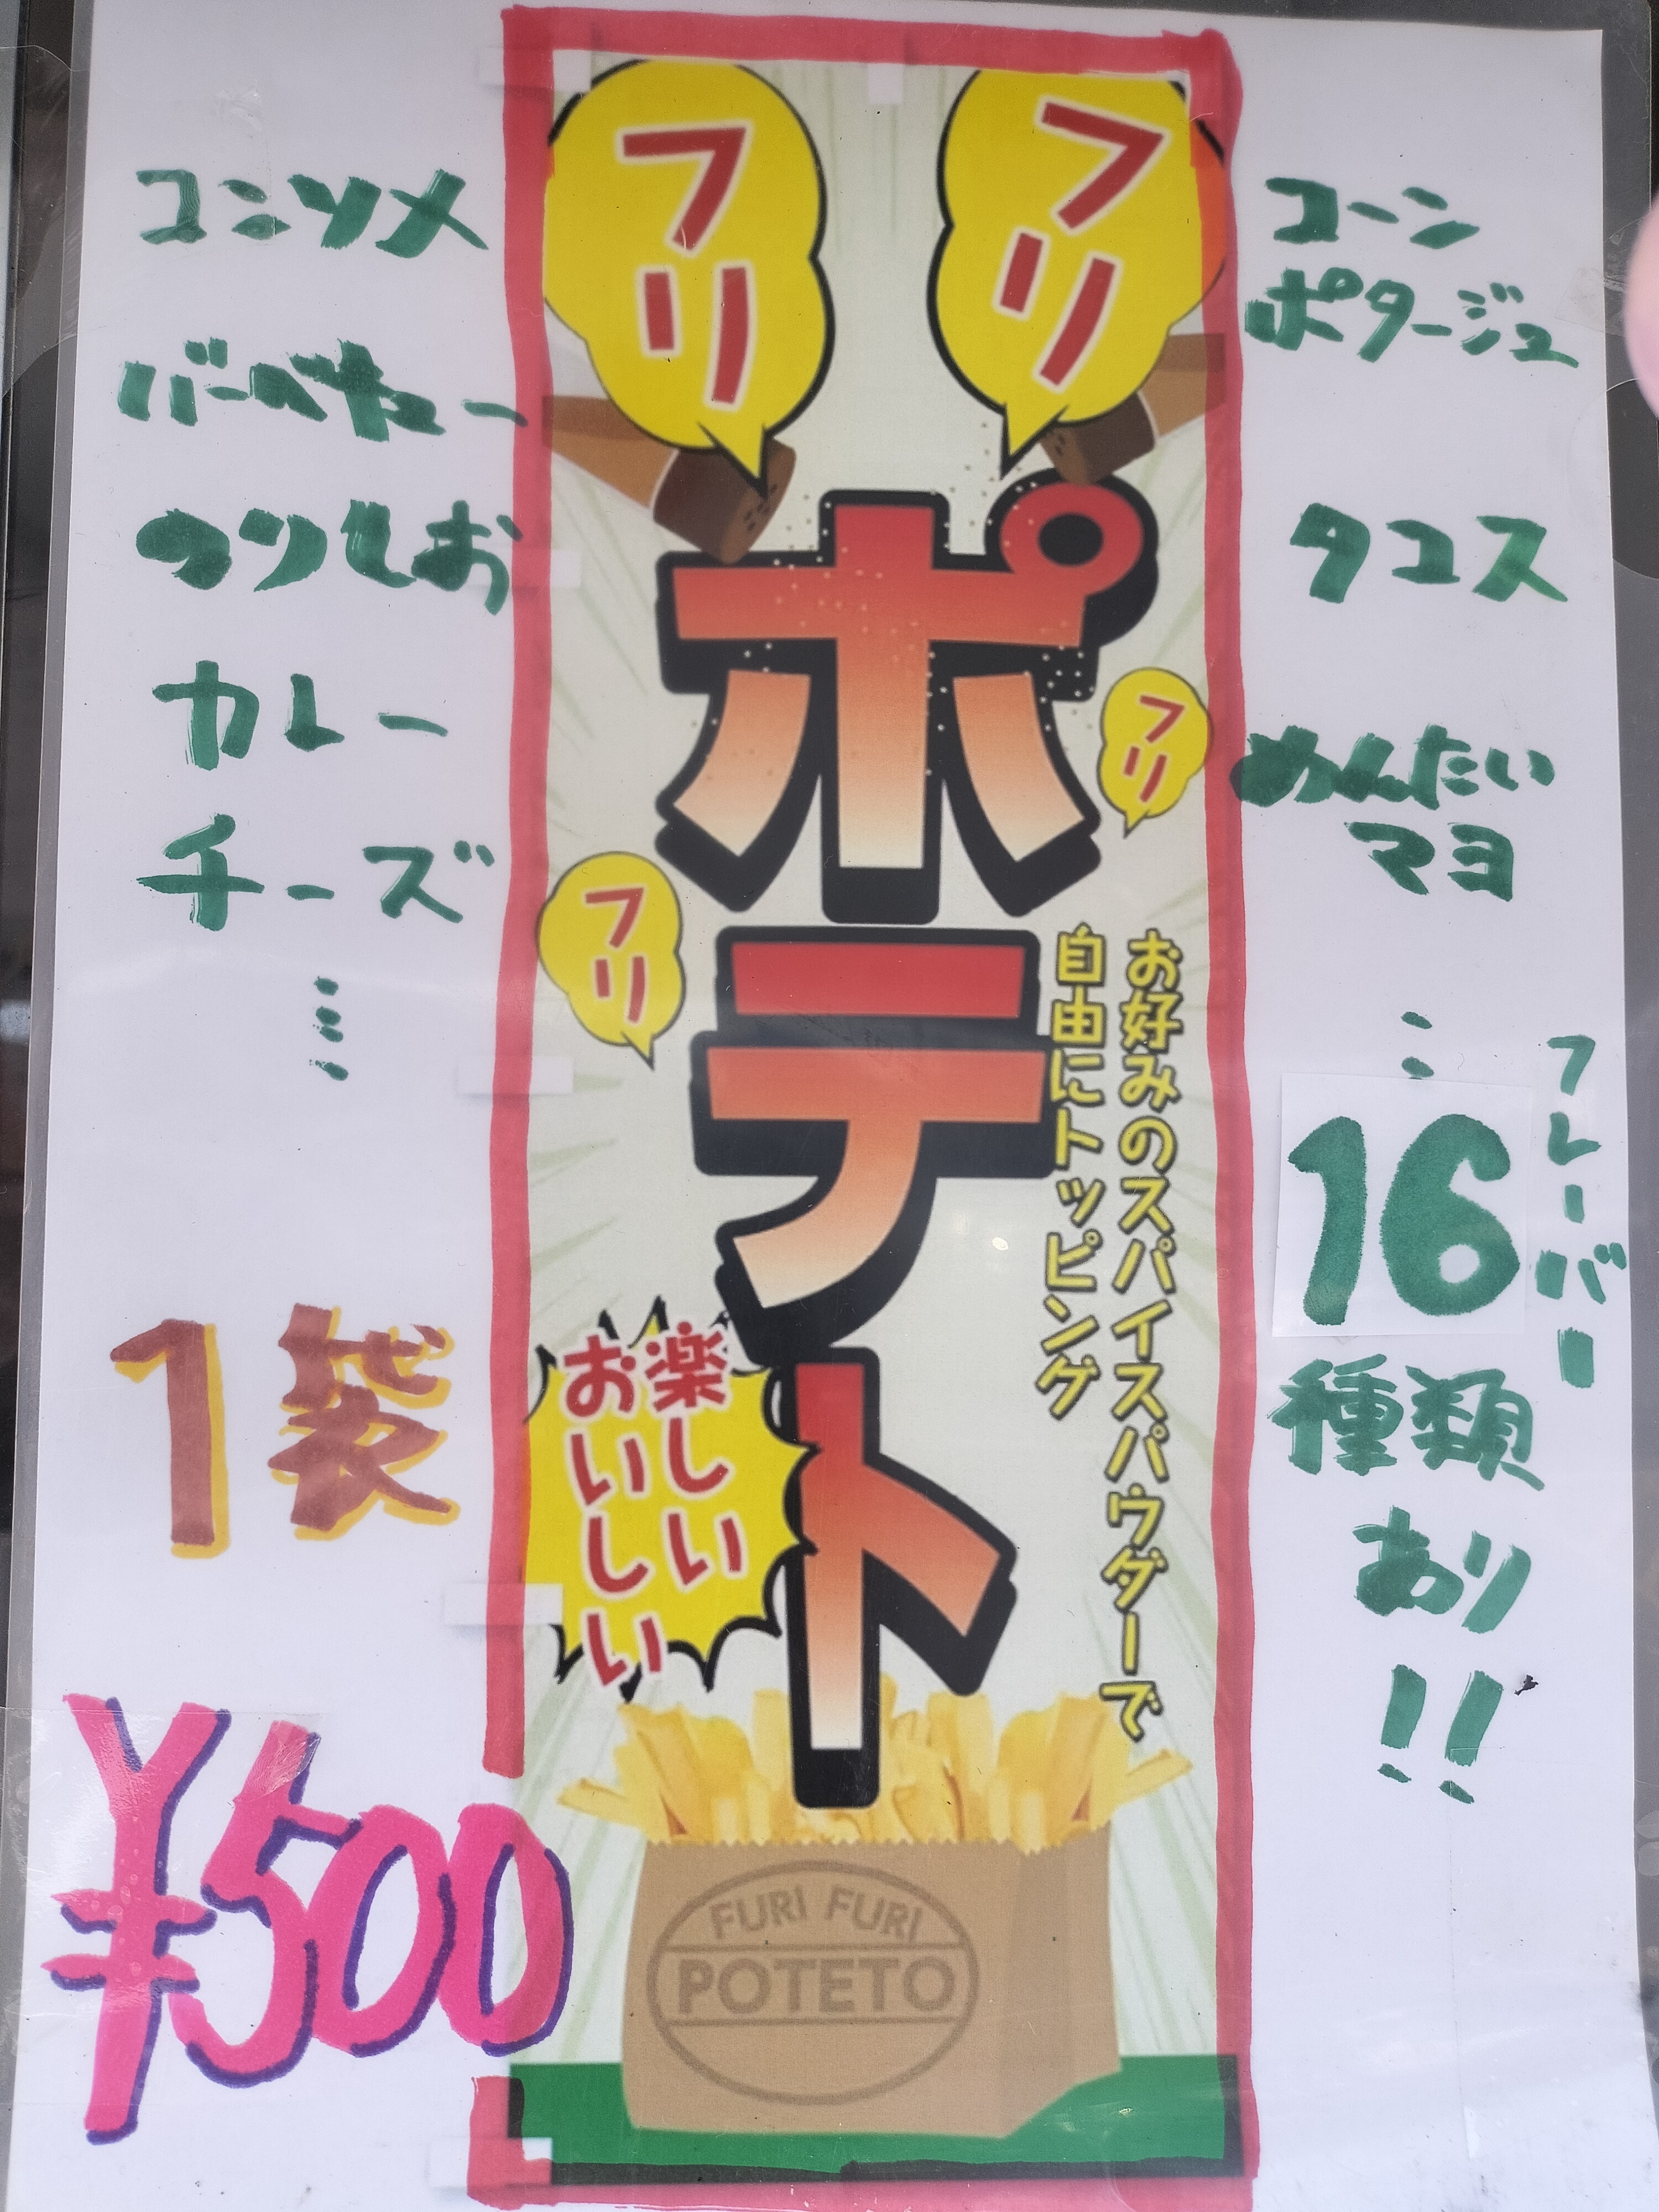 コンソメ
バーベキュー
のりしお
カレー
チーズ
⋮
1袋
¥500
フリ
フリ
ポテト
フリ
フリ
お好みのスパイスパウダーで
自由にトッピング
楽しい
おいしい
FURI FURI
POTETO
コーン
ポタージュ
タコス
めんたい
マヨ
⋮
フレーバー
16
種類
あり
!!